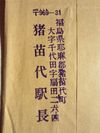 〒969-31
福島県耶麻郡猪苗代町
大字千代田字扇田二六番
猪苗代駅長